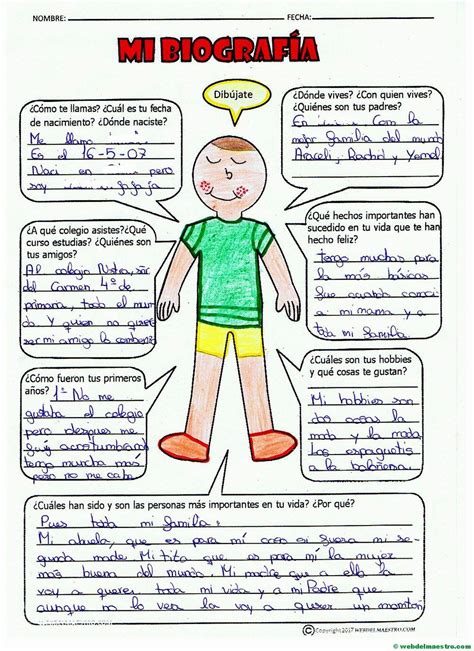 NOMBRE:
FECHA:
MI BIOGRAFÍA
Dibújate
¿Cómo te llamas? ¿Cuál es tu fecha
de nacimiento? ¿Dónde naciste?
Me llamo
En el 16-5-07
Nací en pero
soy jajaja
¿Dónde vives? ¿Con quien vives?
¿Quiénes son tus padres?
En Con la
mejor familia del mundo
Araceli, Rachid y Yamal
¿A qué colegio asistes?¿Qué
curso estudias? ¿Quiénes son
tus amigos?
Al colegio Nstra, sra
del Carmen 4º de
primara, todo el mun
do y quien no quiere
ser mi amigo la combenzo
¿Qué hechos importantes han
sucedido en tu vida que te han
hecho feliz?
tengo muchas para
la más básicas
fue cuando conocí
a mi mama y a
toda mi familia.
¿Cómo fueron tus primeros
años?
1º No me
gustaba el colegio
pero despues me
fuy acostumbrando
tengo murcha mas
pero no me cabe
¿Cuáles son tus hobbies
y qué cosas te gustan?
Mi hobbies son
dos cosas la
moto y la moto
Los espaguetis
a la boloñesa.
¿Cuáles han sido y son las personas más importantes en tu vida? ¿Por qué?
Pues toda mi familia:
Mi abuela, que es para mí como si fuera mi se-
gunda madre. Mi tita que es para mí la mujer
más buena del mundo. Mi madre que a ella la
voy a querer toda mi vida y a mi Padre que
aunque no lo vea la voy a querer un montón
©Copyright 2017 WEBDELMAESTRO.COM
© webdelmaestro.com